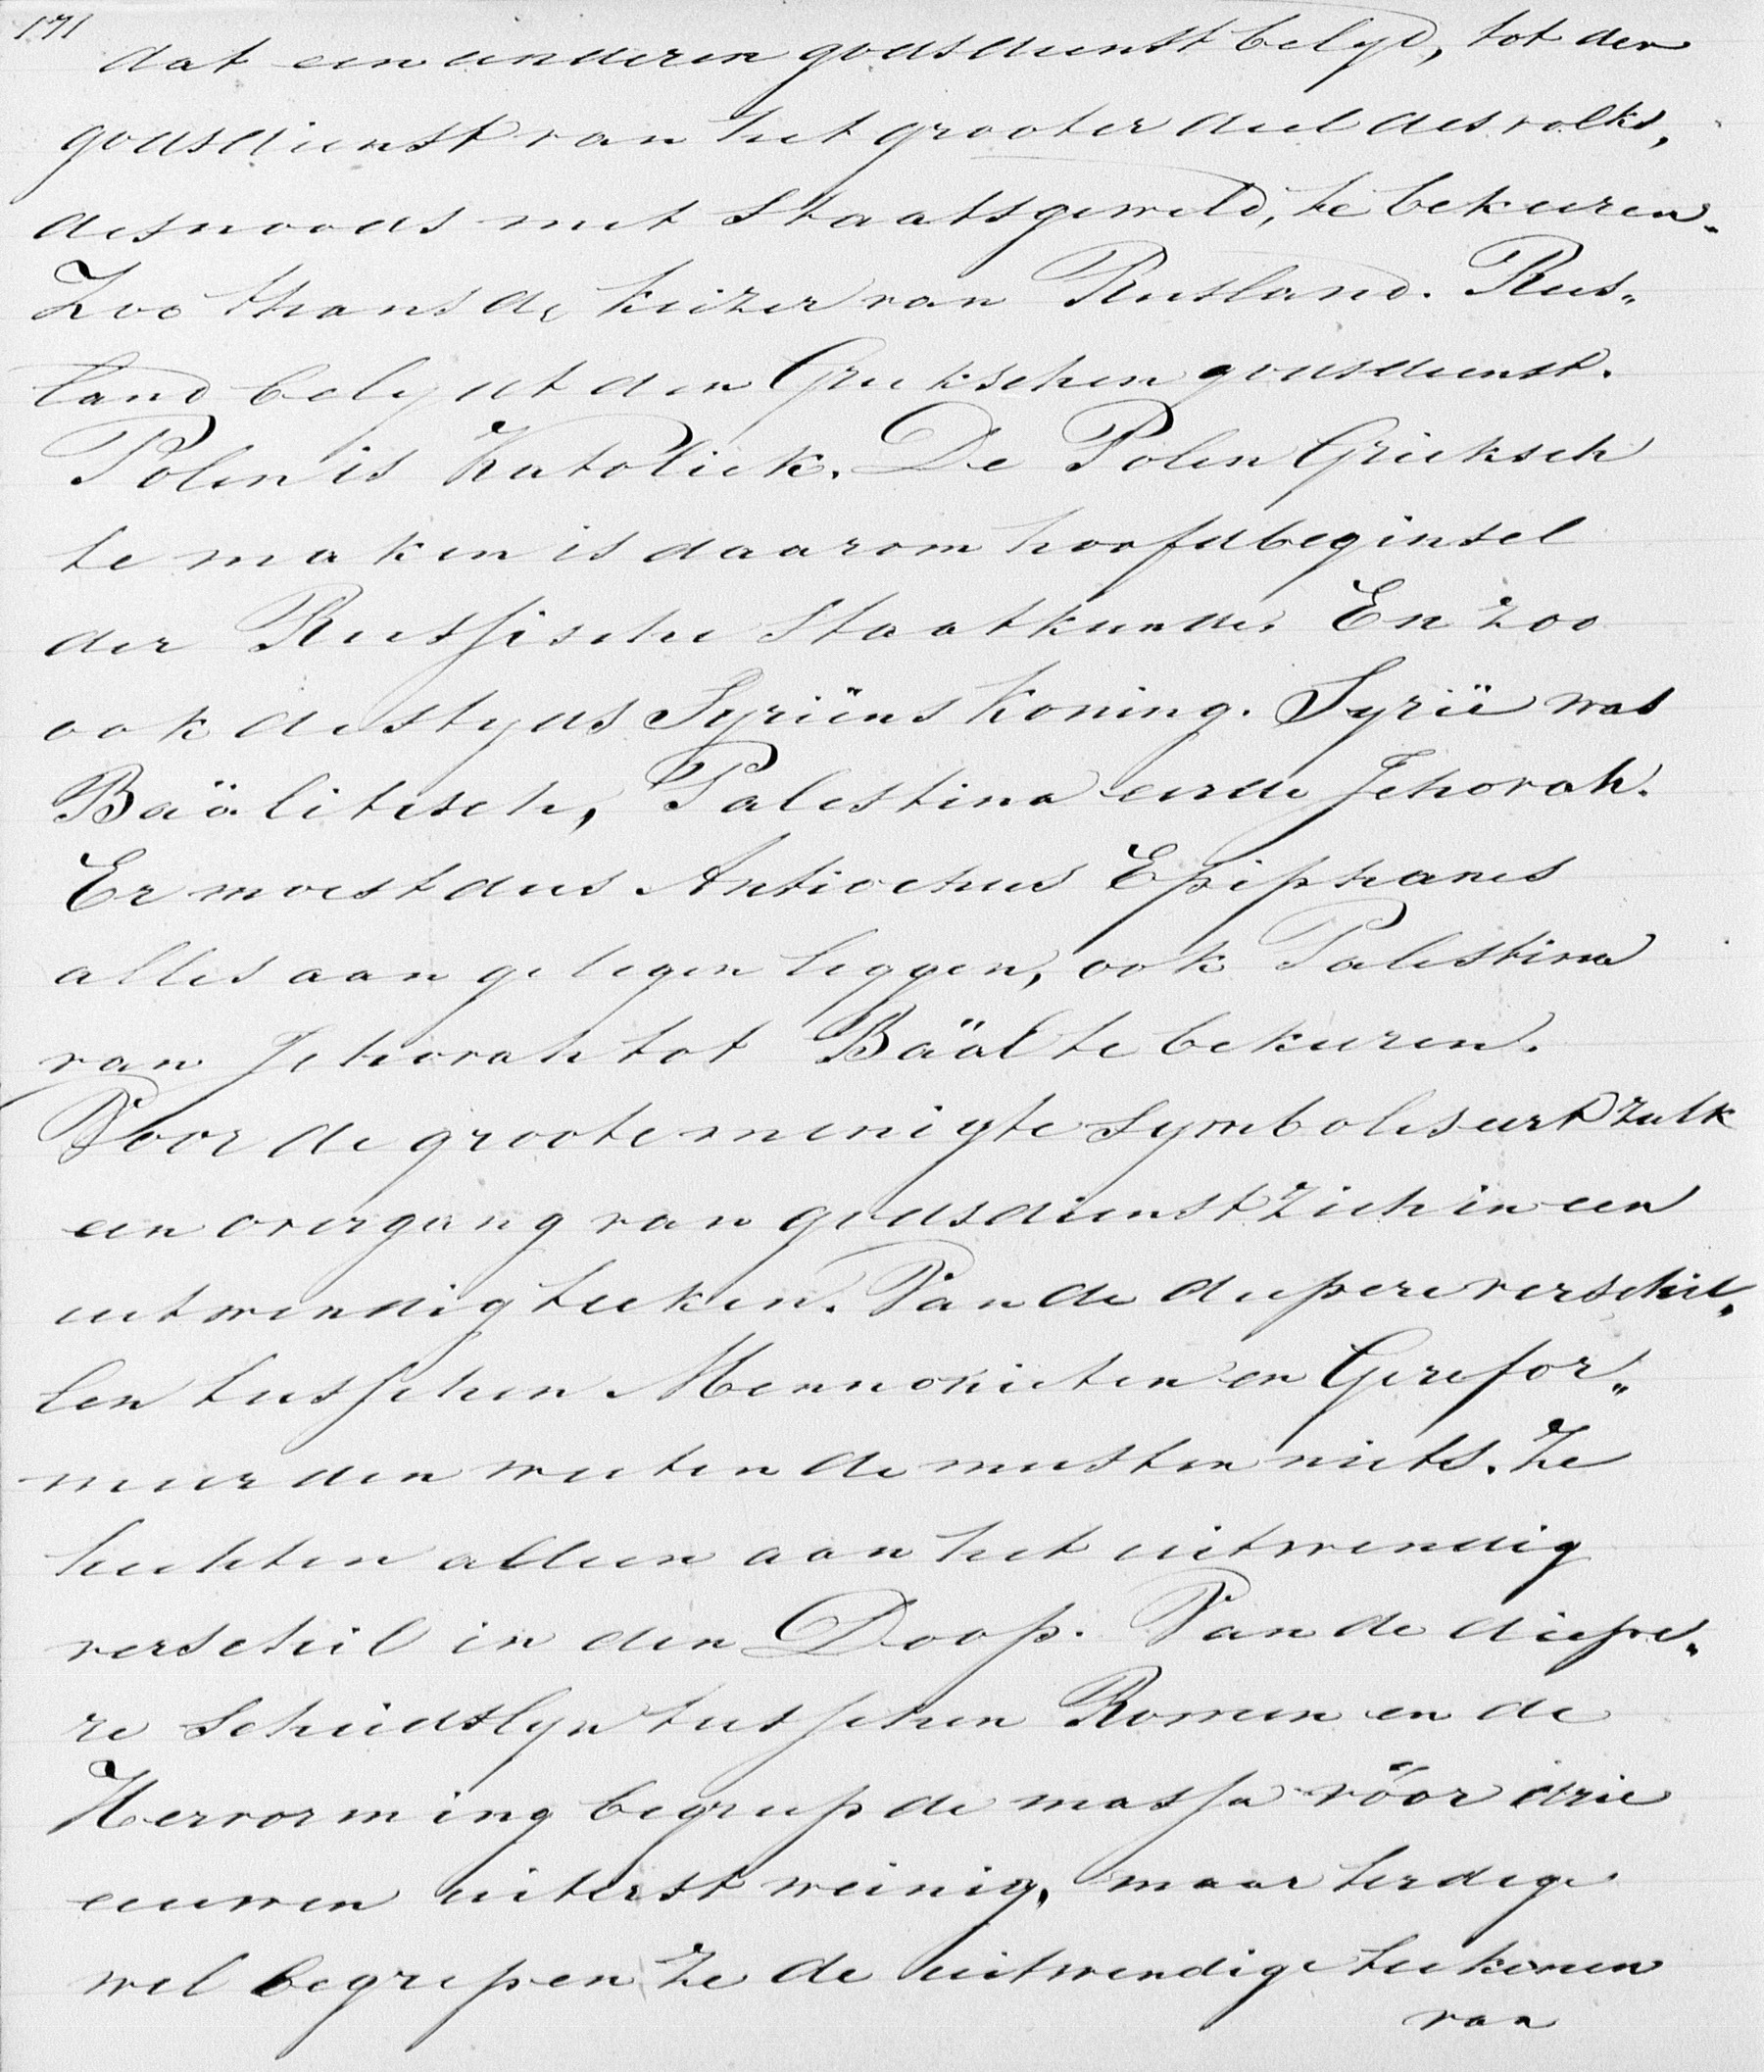 171
dat een anderen godsdienst belyd, tot den
godsdienst van het grooter deel des volks,
desnoods met Staatsgeweld, te bekeeren.
Zoo thans de keizer van Rusland. Rus„
land belydt den Griekschen godsdienst.
Polen is Katoliek. De Polen Grieksch
te maken is daarom hoofdbeginsel
der Russische Staatkunde. En zoo
ook destyds Syriëns koning. Syrië was
Baälitisch, Palestina eerde Jehovah.
Er moest dus Antiochus Epiphanes
alles aan gelegen leggen, ook Palestina
van Jehovah tot Baäl te bekeeren.
Voor de groote menigte Symboliseert zulk
een overgang van godsdienst zich in een
uitwendig teeken. Van de diepere verschil„
len tusschen Mennonieten en Gerefor„
meerden weeten de meesten niets. Ze
hechten alleen aan het uitwendig
verschil in den Doop. Van de diepe„
re Scheidslyn tusschen Romen en de
Hervorming begreep de massa vóor drie
eeuwen uiterst weinig, maar terdege
wel begrepen ze de uitwendige teekenen
van